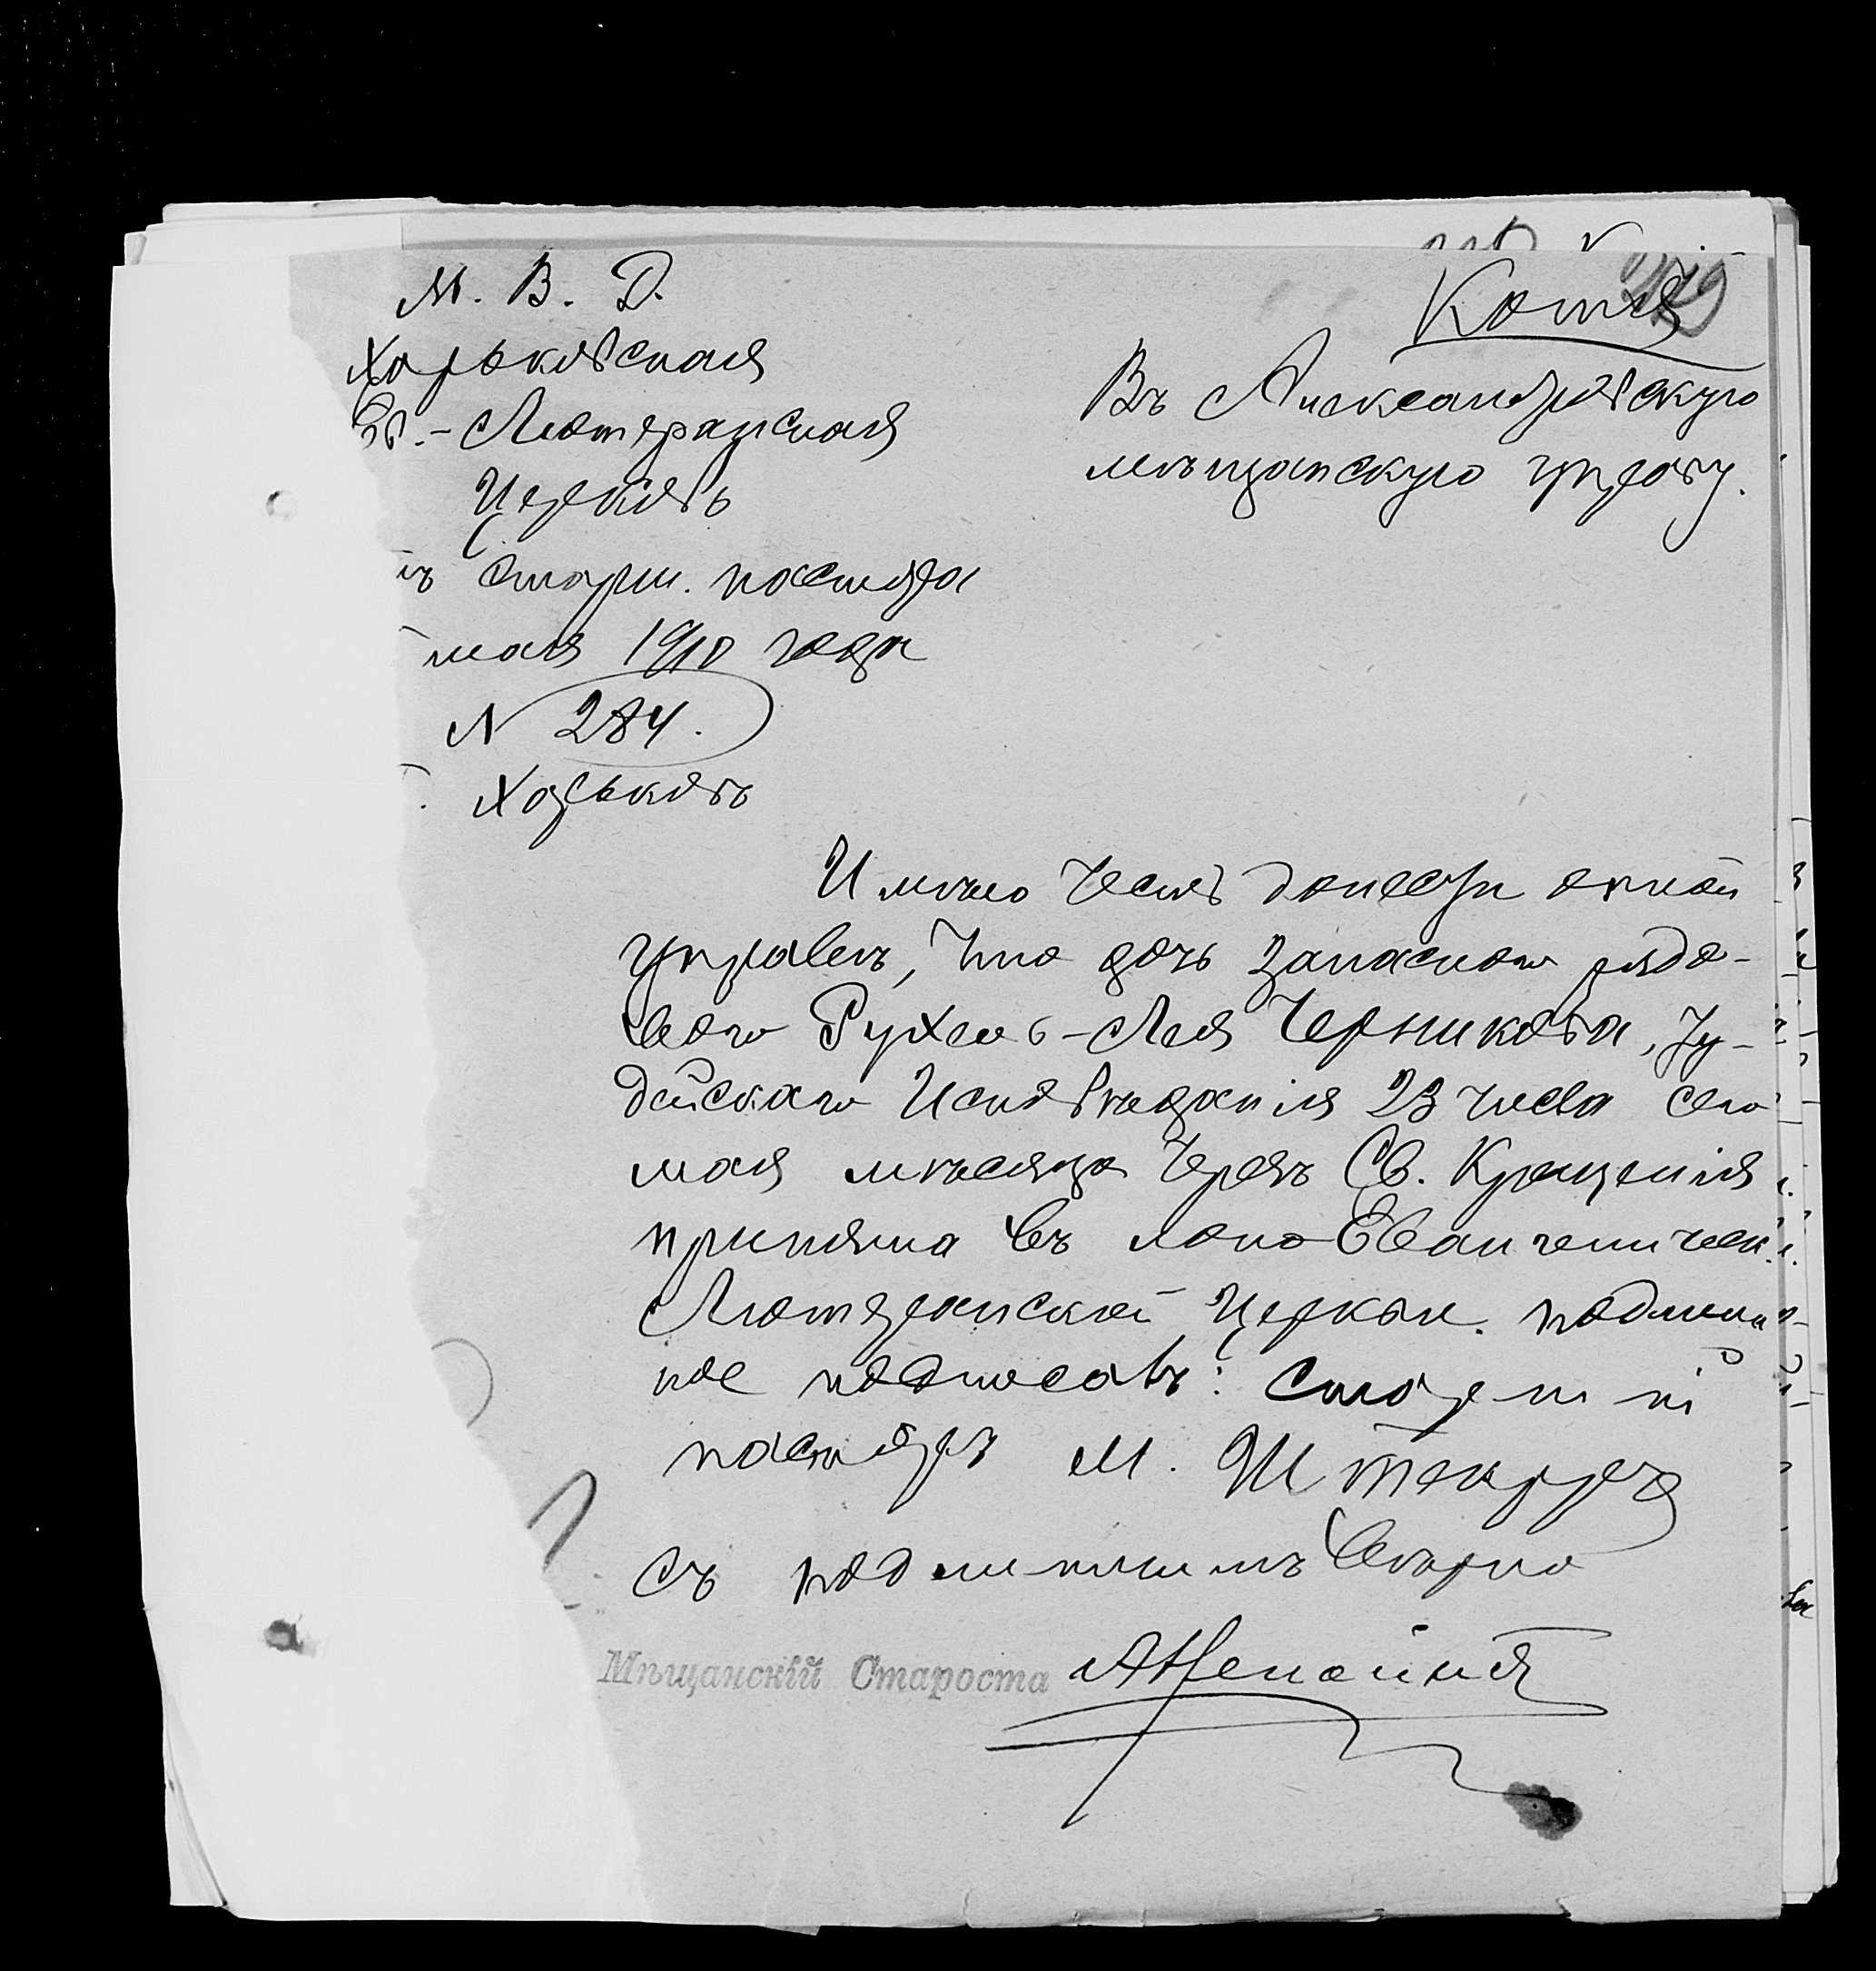 М. В. Д.
Харьковская
Ев.-Лютеранская
Церковь
старш. пастора
мая 1910 года
N 284.
Харьковъ
Копія
Въ Александровскую
мѣщанскую управу.
Имѣю честь донести оной
управѣ, что дочь запаснаго рядо-
вого Рухель-Лея Черникова, Іу-
дейскаго Исповѣданія 23 числа сего
мая мѣсяца чрезъ Св. Крещенія
принята въ лоно Евангелическ.
Лютеранской Церкви. подлин
ное подписалъ: Старшій
пасторъ М.
съ подлиннымъ вѣрно
Мѣщанскій Староста